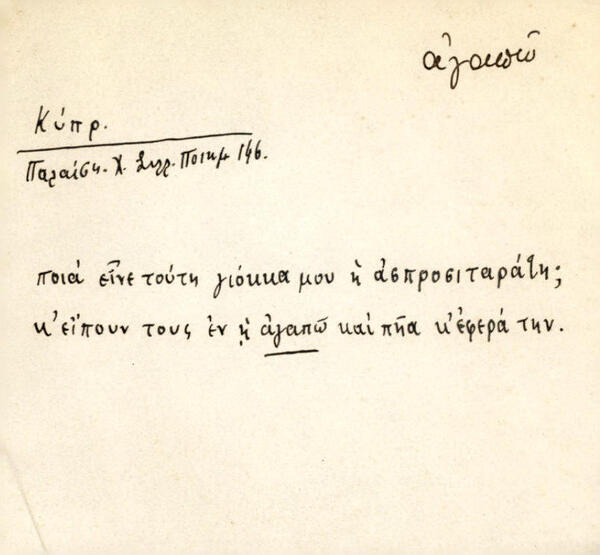 ἀγαπῶ
Κύπρ.
Παλαίσκ. Χ. Συλλ. Ποιημ 146.
ποιὰ εἶνε τούτη γιόκκα μου ἡ ἀσπροσιταράτη;
κ' εἴπουν τους ἐν ἡ ἀγαπῶ καὶ πῆα κ' ἔφερά την.